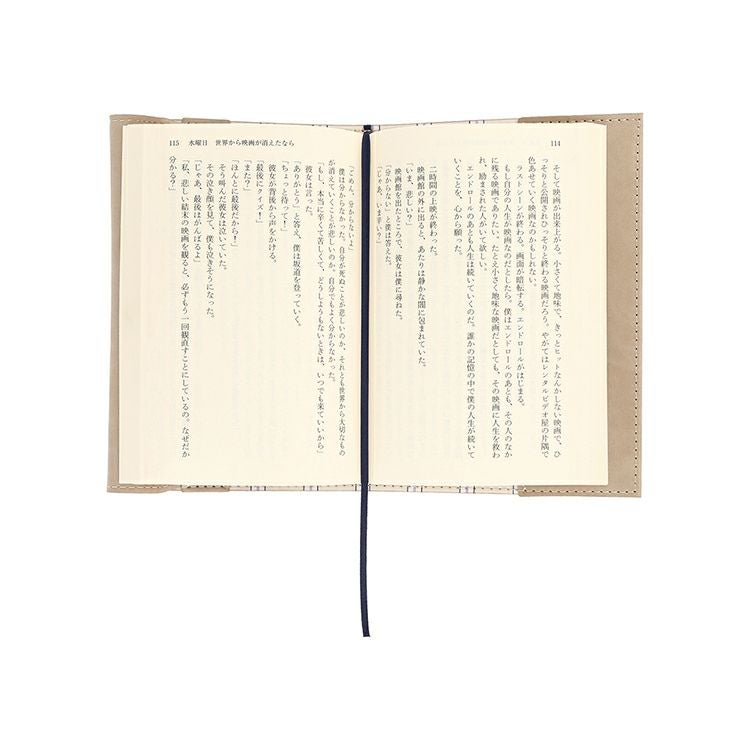 114
そして映画が出来上がる。小さくて地味で、きっとヒットなんかしない映画で、ひ
っそりと公開されひっそりと終わる映画だろう。やがてはレンタルビデオ屋の片隅で
色あせていく映画なのかもしれない。
ラストシーンが終わる。画面が暗転する。エンドロールがはじまる。
もし自分の人生が映画なのだとしたら。僕はエンドロールのあとも、その人のなか
に残る映画でありたい。たとえ小さく地味な映画だとしても、その映画に人生を救わ
れ、励まされた人がいて欲しい。
エンドロールのあとも人生は続いていくのだ。誰かの記憶の中で僕の人生が続いて
いくことを、心から願った。
二時間の上映が終わった。
映画館の外に出ると、あたりは静かな闇に包まれていた。
「いま、悲しい？」
映画館を出たところで、彼女は僕に尋ねた。
「分からない」と僕は答えた。
「じゃあ、いま辛い？」
115 水曜日 世界から映画が消えたなら
「ごめん、分からないよ」
僕は分からなかった。自分が死ぬことが悲しいのか、それとも世界から大切なもの
が消えていくことが悲しいのか。自分でもよく分からなかった。
「もし、本当に辛くて苦しくて、どうしようもないときは、いつでも来ていいから」
彼女は言った。
「ありがとう」と答え、僕は坂道を登っていく。
「ちょっと待って！」
彼女が背後から声をかける。
「最後にクイズ！」
「また？」
「ほんとに最後だから！」
そう叫んだ彼女は泣いていた。
その泣き顔を見て、僕も泣きそうになった。
「じゃあ、最後はがんばるよ」
「私、悲しい結末の映画を観ると、必ずもう一回観直すことにしているの。なぜだか
分かる？」